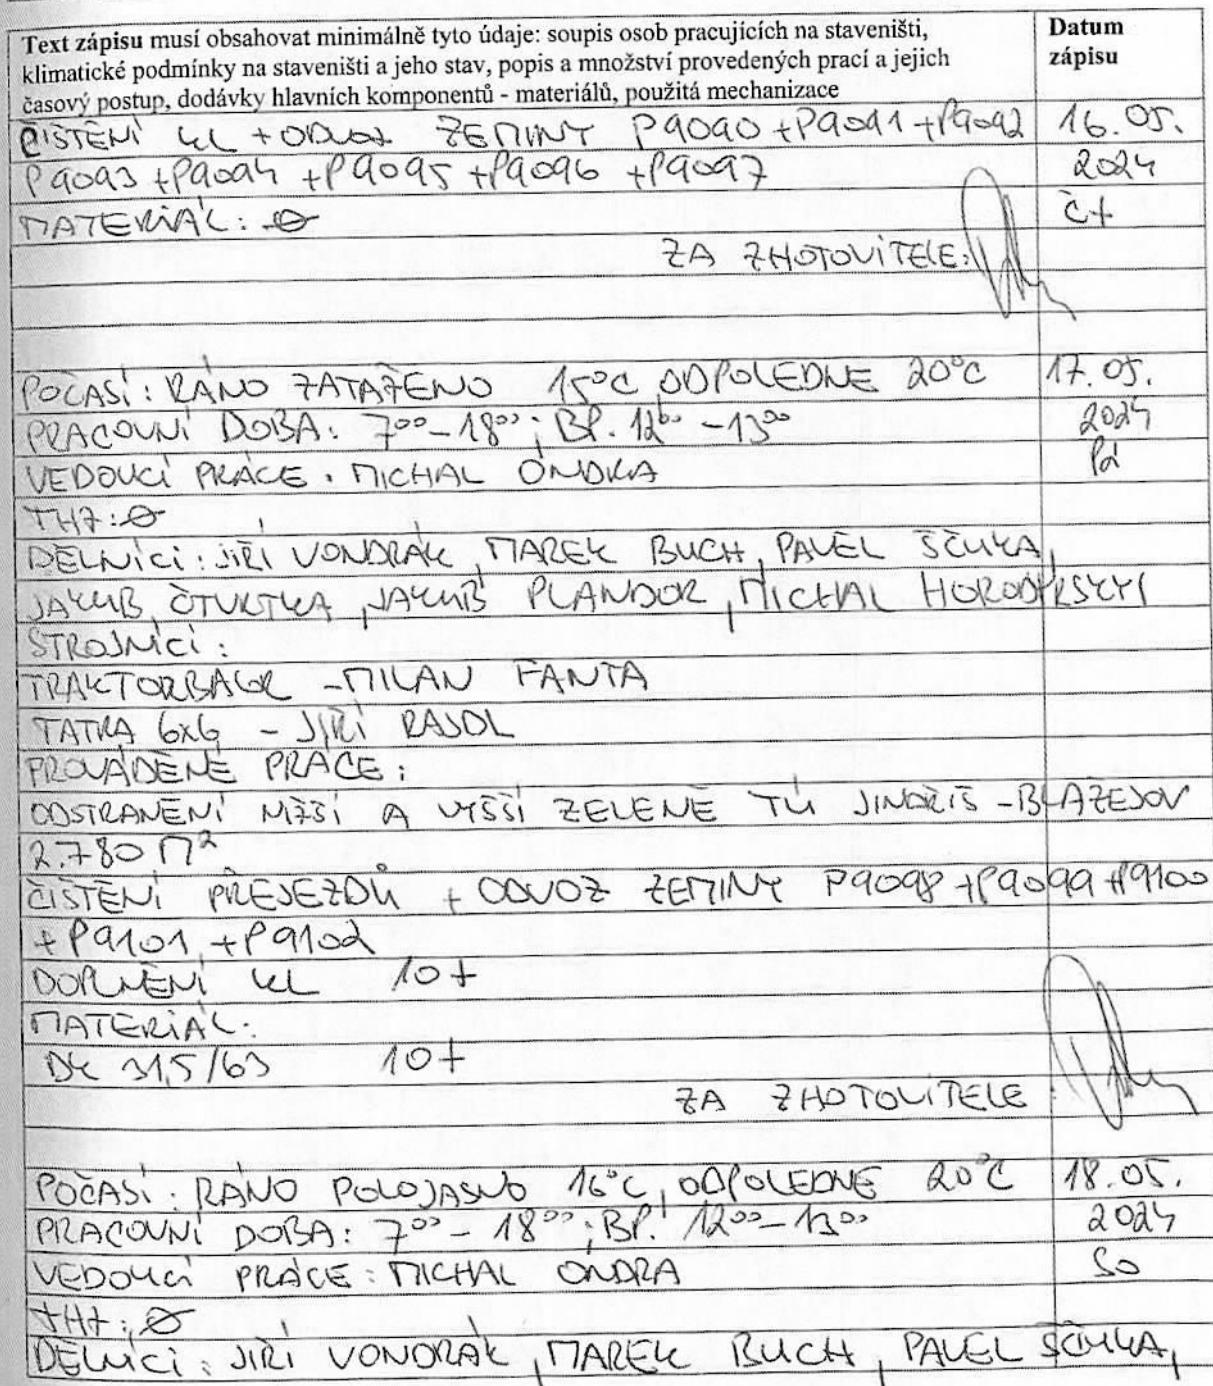 Text zápisu musí obsahovat minimálně tyto údaje: soupis osob pracujících na staveništi, Datum
klimatické podmínky na staveništi a jeho stav, popis a množství provedených prací a jejich zápisu
časový postup, dodávky hlavních komponentů - materiálů, použitá mechanizace
ČIŠTĚNÍ KL + ODVOZ ZEMINY P9090 + P9091 + P9092 16.05.
P9093 + P9094 + P9095 + P9096 + P9097 2024
MATERIÁL: Ø Čt
ZA ZHOTOVITELE:
POČASÍ: RÁNO ZATAŽENO 15°C ODPOLEDNE 20°C 17.05.
PRACOVNÍ DOBA: 7⁰⁰ - 18⁰⁰; BP. 12⁰⁰ - 13⁰⁰ 2024
VEDOUCÍ PRÁCE: MICHAL ONDRA Pá
THZ: Ø
DĚLNÍCI: JIŘÍ VONDRÁK, MAREK BUCH, PAVEL ŠČUKA,
JAKUB ČTVRTKA, JAKUB PLANDOR, MICHAL HORODYSKYI
STROJNÍCI:
TRAKTORBAGR - MILAN FANTA
TATRA 6x6 - JIŘÍ RAJDL
PROVÁDĚNÉ PRÁCE:
ODSTRANĚNÍ NIŽŠÍ A VYŠŠÍ ZELENĚ TÚ JINDŘIŠ - BLAŽEJOV
2.780 M²
ČIŠTĚNÍ PŘEJEZDŮ + ODVOZ ZEMINY P9098 + P9099 + P9100
+ P9101 + P9102
DOPLNĚNÍ KL 10t
MATERIÁL:
DK 31,5/63 10t
ZA ZHOTOVITELE
POČASÍ: RÁNO POLOJASNO 16°C, ODPOLEDNE 20°C 18.05.
PRACOVNÍ DOBA: 7⁰⁰ - 18⁰⁰; BP. 12⁰⁰ - 13⁰⁰ 2024
VEDOUCÍ PRÁCE: MICHAL ONDRA So
THZ: Ø
DĚLNÍCI: JIŘÍ VONDRÁK, MAREK BUCH, PAVEL ŠČUKA,